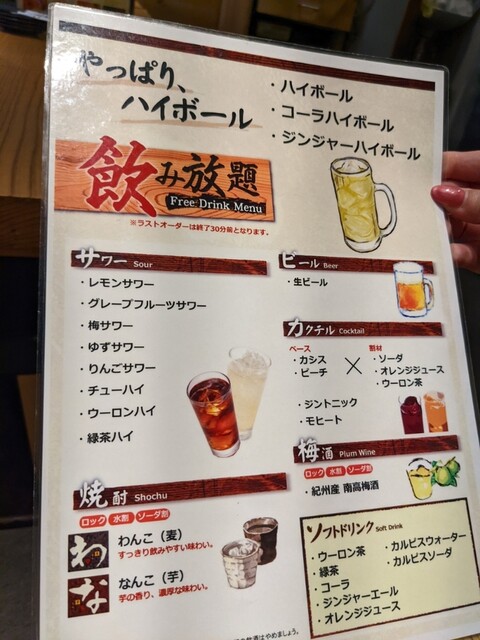 やっぱり、
ハイボール
・ハイボール
・コーラハイボール
・ジンジャーハイボール
飲み放題
Free Drink Menu
※ラストオーダーは終了30分前となります。
サワー Sour
・レモンサワー
・グレープフルーツサワー
・梅サワー
・ゆずサワー
・りんごサワー
・チューハイ
・ウーロンハイ
・緑茶ハイ
ビール Beer
・生ビール
カクテル Cocktail
ベース
・カシス
・ピーチ
×
割材
・ソーダ
・オレンジジュース
・ウーロン茶
・ジントニック
・モヒート
梅酒 Plum Wine
ロック 水割 ソーダ割
・紀州産 南高梅酒
焼酎 Shochu
ロック 水割 ソーダ割
わ
わんこ（麦）
すっきり飲みやすい味わい。
な
なんこ（芋）
芋の香り、濃厚な味わい。
ソフトドリンク Soft Drink
・ウーロン茶
・緑茶
・コーラ
・ジンジャーエール
・オレンジジュース
・カルピスウォーター
・カルピスソーダ
飲酒はやめましょう。